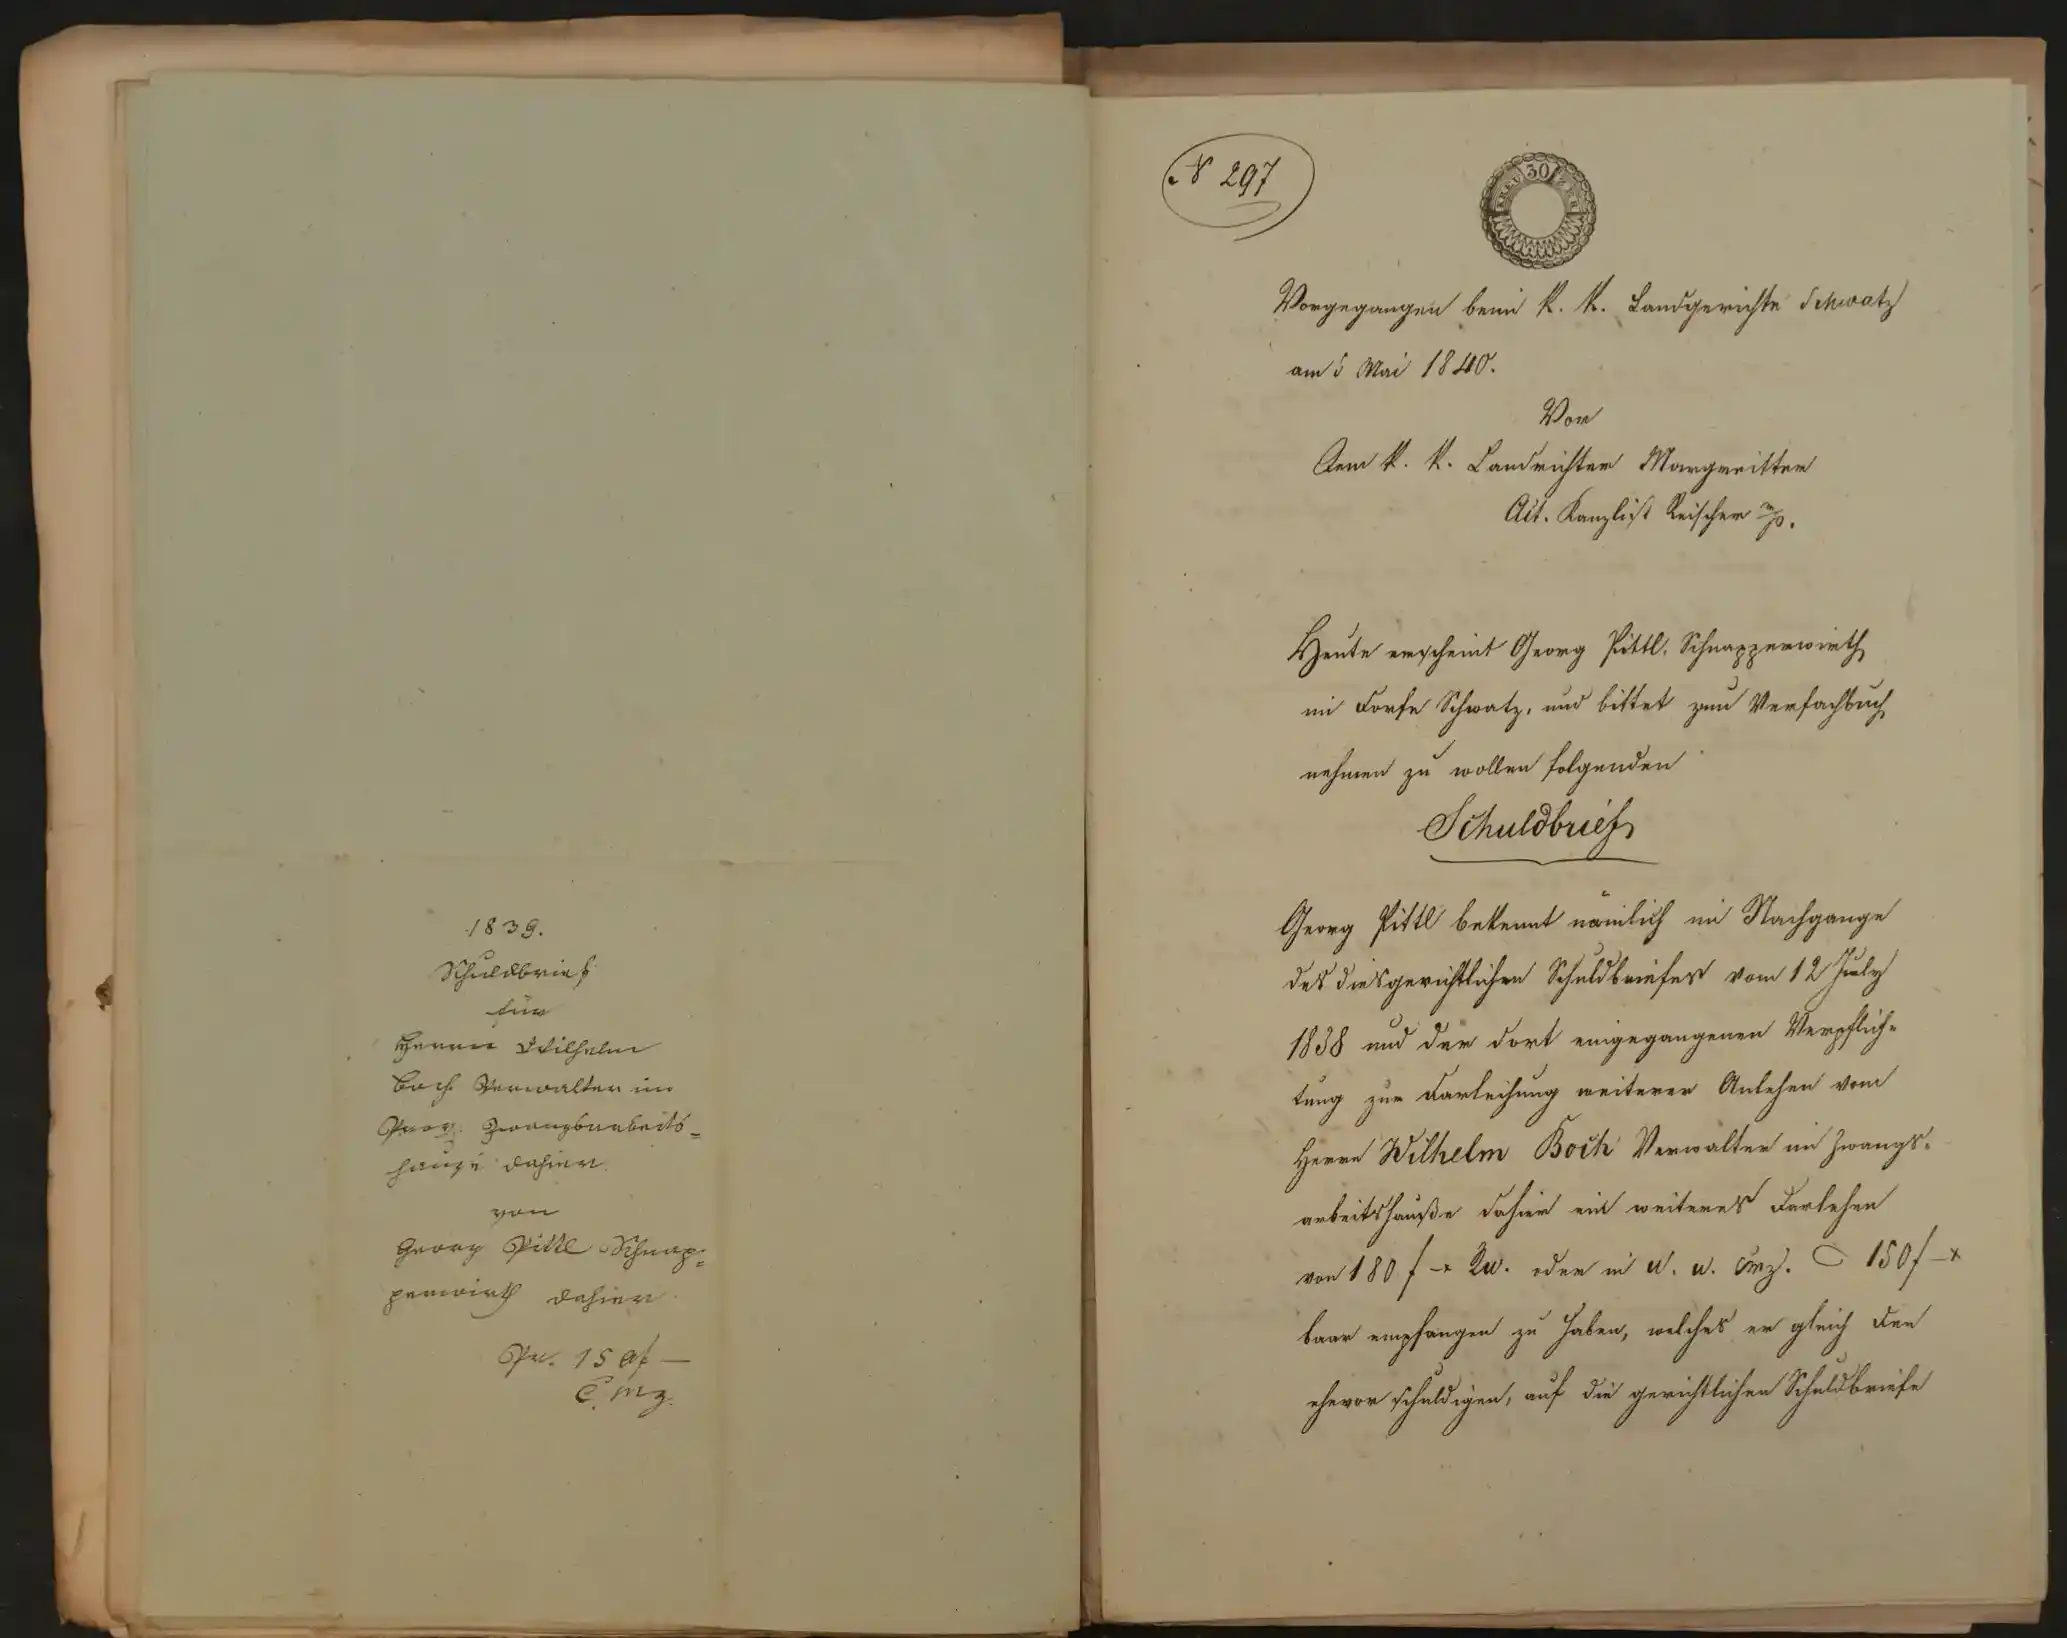 1839.
Schuldbrief
für
Herrn Wilhelm
Koch Verwalter im
Prov. Zwangsarbeits=
hause dahier
von
Georg Pittl Schnap=
perwirth dahier
Pr. 150 f —
C. Mz.
N 297
30 KREUZER
Vorgegangen beim k. k. Landgerichte Schwatz
am 5 Mai 1840.
Vor
dem k. k. Landrichter Margreitter
Act. Kanzlist Reischer
Heute erscheint Georg Pittl, Schnapperwirth
im Dorfe Schwatz, und bittet zum Verfachbuch
nehmen zu wollen folgenden
Schuldbrief
Georg Pittl bekennt nämlich im Nachgange
des diesgerichtlichen Schuldbriefes vom 12 July
1838 und der dort eingegangenen Verpflich=
tung zur Darleihung weiterer Anlehen vom
Herrn Wilhelm Koch Verwalter im Zwangs=
arbeitshauße dahier ein weiteres Darlehen
von 180 f – x Rw. oder in W. W. CMz. 150 f – x
baar empfangen zu haben, welches er gleich den
ehevor schuldigen, auf die gerichtlichen Schuldbriefe